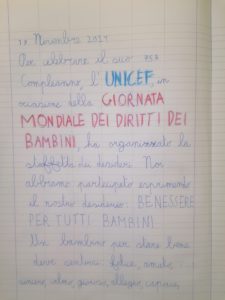 19 Novembre 2021
Per celebrare il suo 75º
Compleanno, l'UNICEF, in
occasione della GIORNATA
MONDIALE DEI DIRITTI DEI
BAMBINI, ha organizzato la
staffetta dei desideri. Noi
abbiamo partecipato esprimendo
il nostro desiderio: BENESSERE
PER TUTTI BAMBINI.
Un bambino per stare bene
deve sentirsi felice, amato,
sereno, calmo, gioioso, allegro, capace,